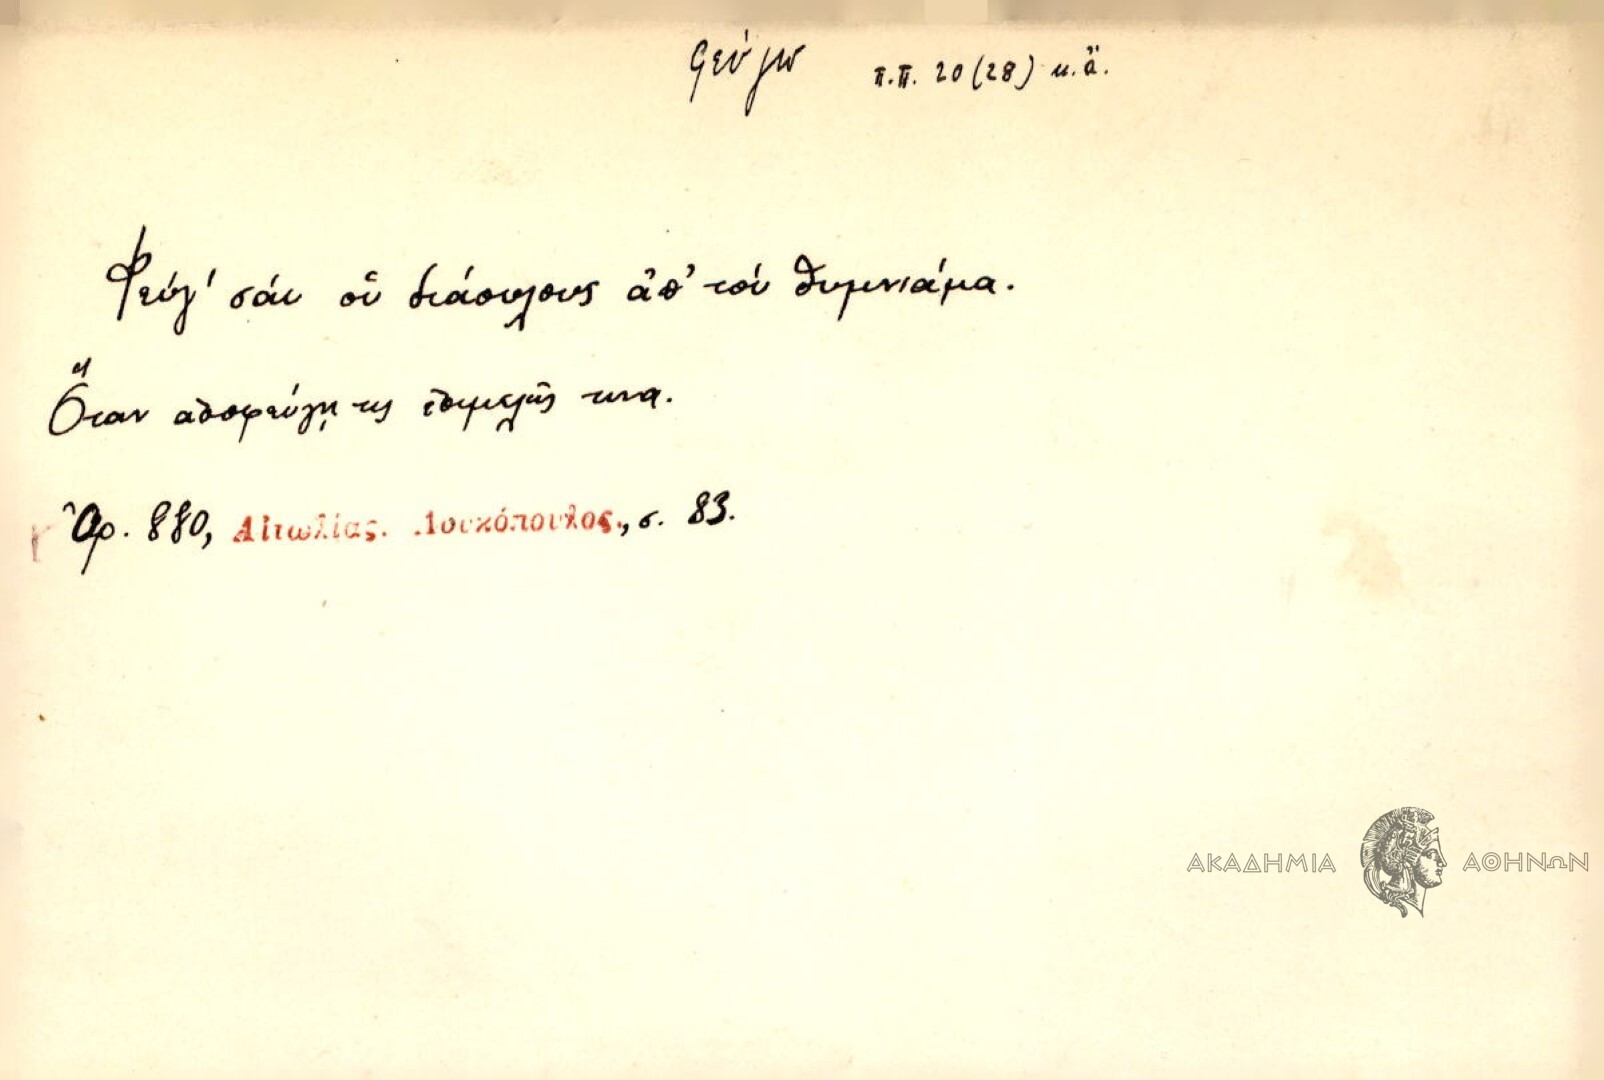 φεύγω π.π. 20 (28) κ.ἄ.
Φεύγ' σὰν οὑ διάουλους ἀπ' τοὺ θυμνιάμα.
Ὅταν ἀποφεύγῃ τις ἐπιμελῶς τινα.
Ἀρ. 880, Αἰτωλίας. Λουκόπουλος, σ. 83.
ΑΚΑΔΗΜΙΑ ΑΘΗΝΩΝ